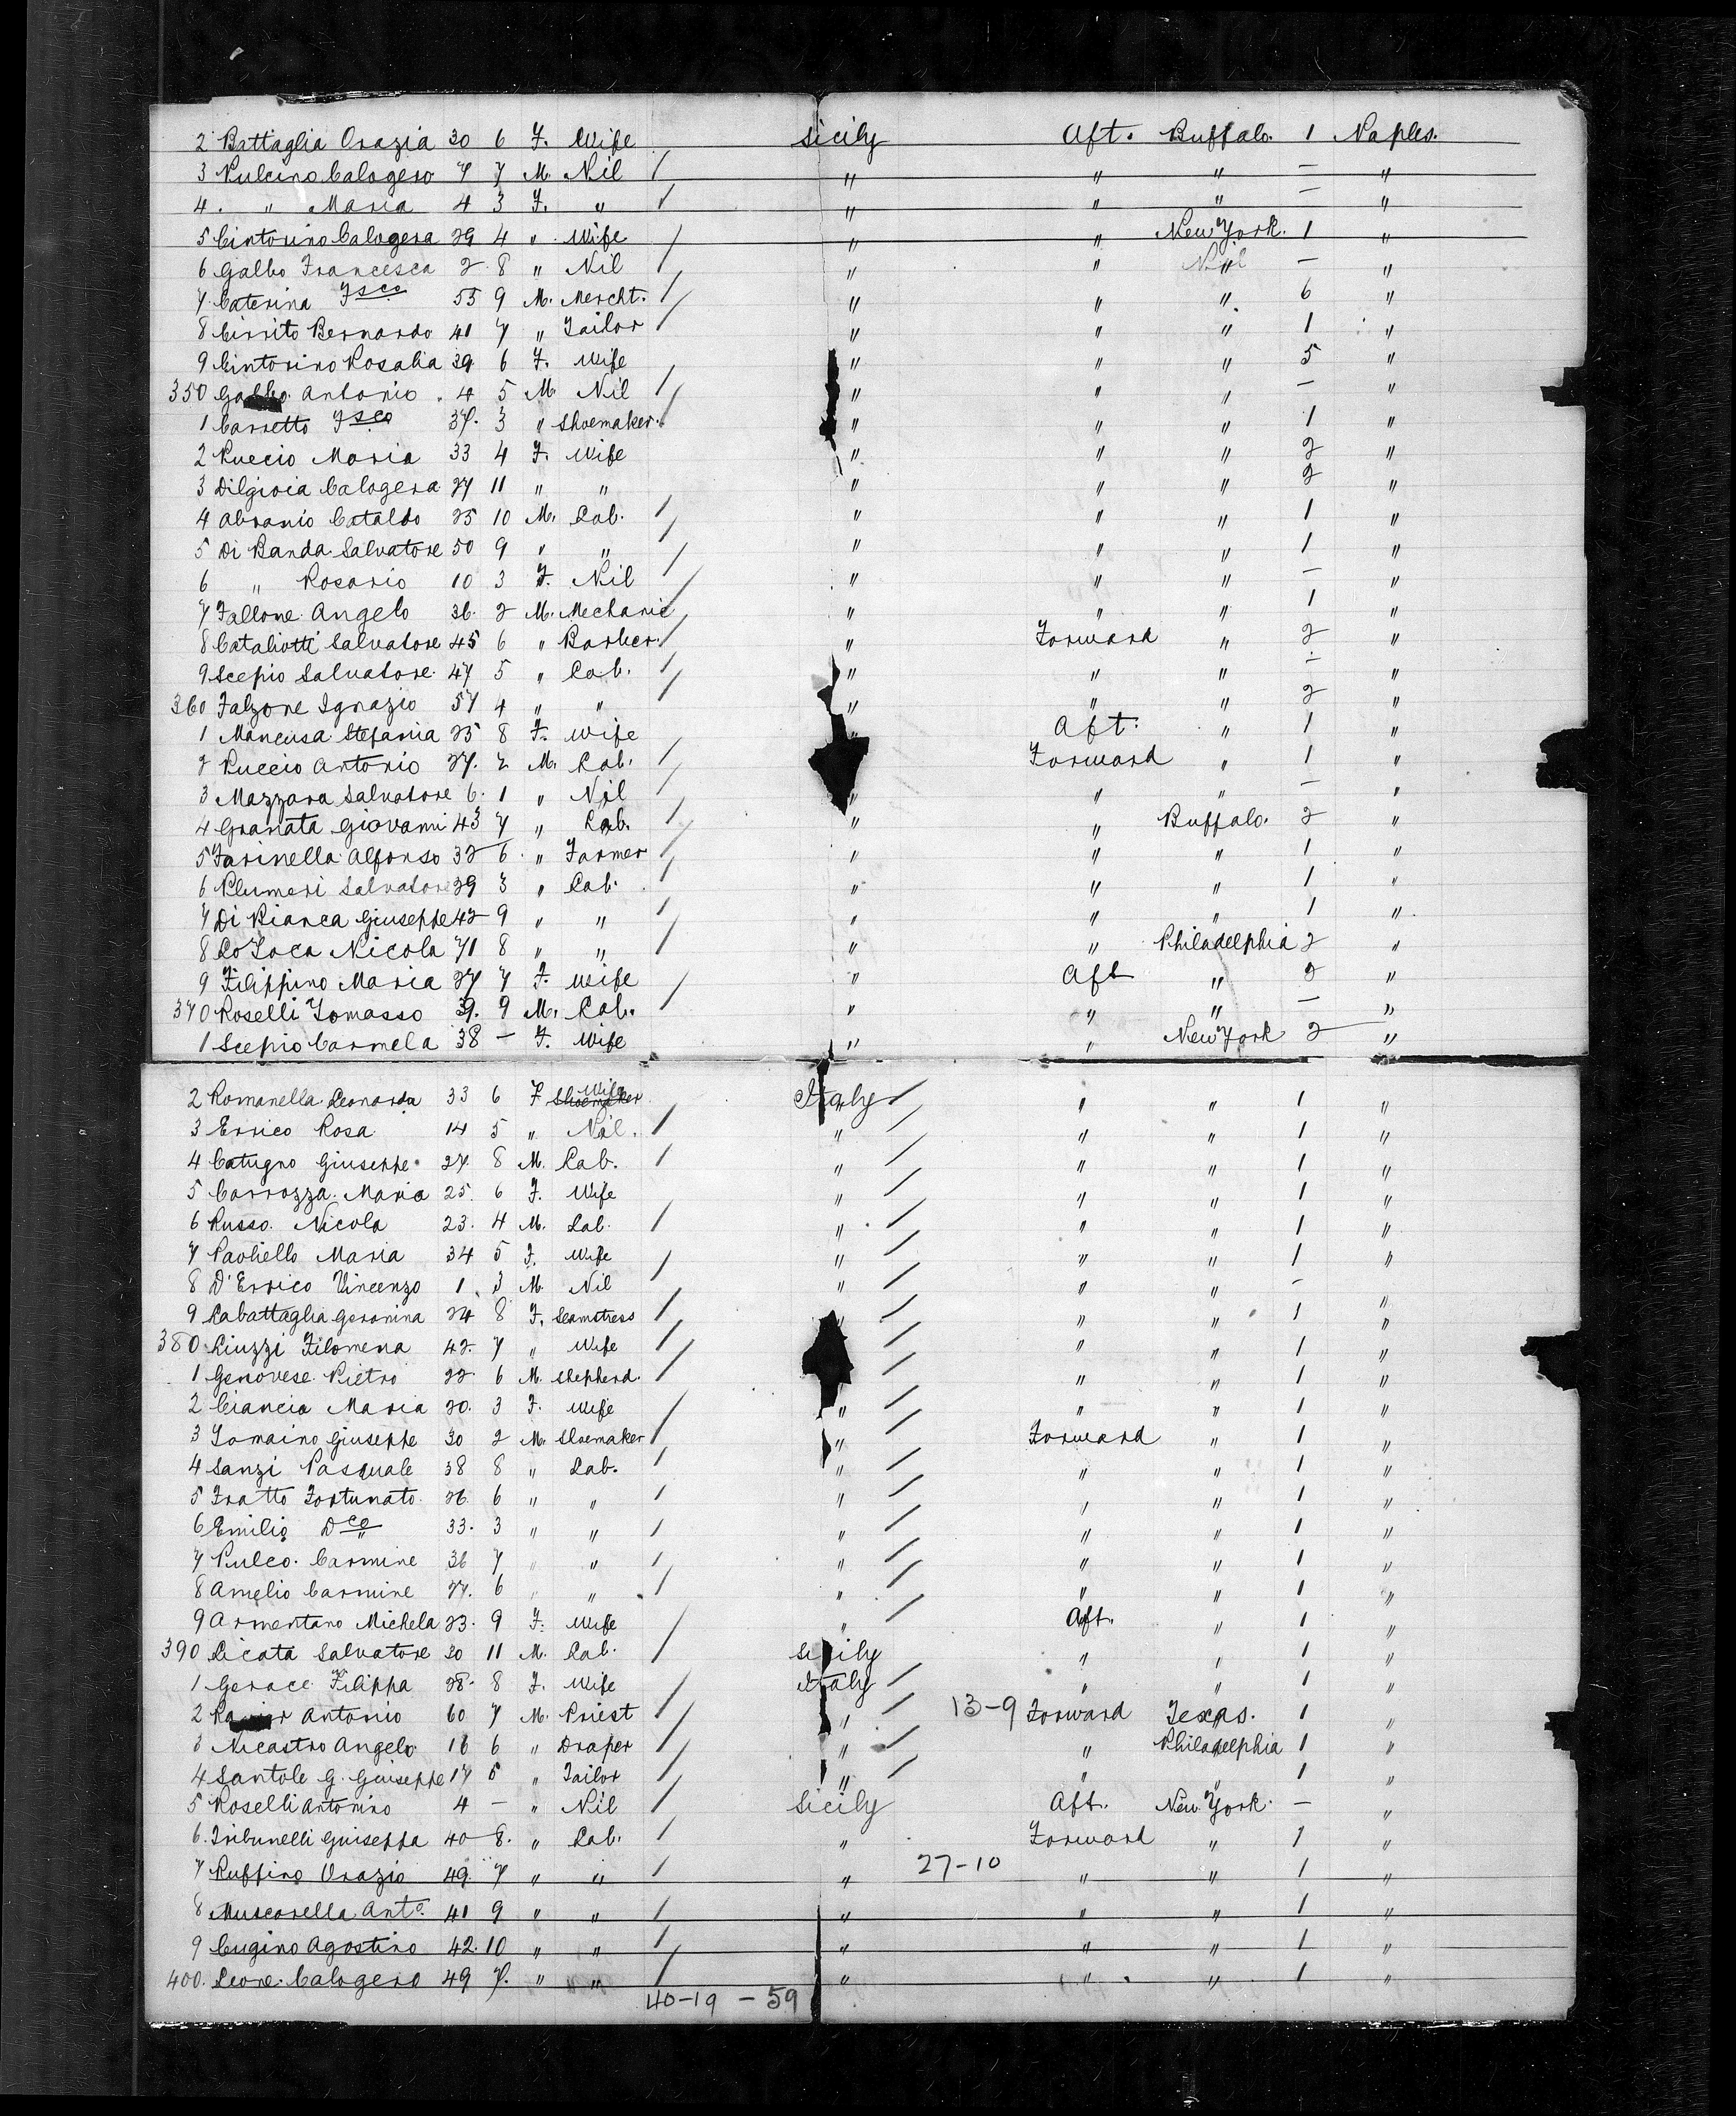 2 Battaglia Orazia 30 6 F. Wife Sicily Aft. Buffalo. 1 Naples.
3 Pulcino Calogero 7 7 M. Nil / " " " — "
4. " Maria 4 3 F. " / " " " — "
5 Cintorino Calogera 29 4 " Wife / " " New York. 1 "
6 Galbo Francesca 2 8 " Nil / " " " — "
7 Caterina Fsco 55 9 M. Mercht. / " " " 6 "
8 Cirrito Bernardo 41 7 " Tailor / " " " 1 "
9 Cintorino Rosalia 39 6 F. Wife " " " 5 "
350 Galbo Antonio. 4 5 M Nil / " " " — "
1 Carretto Fsco 37. 3 " Shoemaker. / " " " 1 "
2 Puccio Maria 33 4 F. Wife " " " 2 "
3 Dilgioia Calogera 27 11 " " " " " 2 "
4 Abranio Cataldo 25 10 M. Lab. / " " " 1 "
5 Di Banda Salvatore 50 9 " " / " " " 1 "
6 " Rosario 10 3 F. Nil / " " " — "
7 Fallone Angelo 36. 2 M. Mechanic / " " " 1 "
8 Cataliotti Salvatore 45 6 " Barber. / " Forward " 2 "
9 Scepio Salvatore. 47 5 " Lab. / " " " — "
360 Falzone Ignazio 57 4 " " / " " " 2 "
1 Mancusa Stefania 25 8 F. Wife " Aft. " 1 "
2 Puccio Antonio 27. 2 M. Lab. / Forward " 1 "
3 Mazzara Salvatore 6. 1 " Nil / " " " — "
4 Granata Giovanni 43 7 " Lab. / " " Buffalo. 2 "
5 Farinella Alfonso 32 6. " Farmer / " " " 1 "
6 Plumeri Salvatore 39 3 " Lab. / " " " 1 "
7 Di Bianca Giuseppe 42 9 " " / " " " 1 "
8 Lo Foca Nicola 71 8 " " / " " Philadelphia 2 "
9 Filippino Maria 27 7 F. Wife " Aft " 2 "
370 Roselli Tomasso 39. 9 M. Lab. / " " " — "
1 Scepio Carmela 38 — F. Wife " " New York 2 "
2 Romanella Leonarda 33 6 F Shoemaker Wife Italy / " " 1 "
3 Errico Rosa 14 5 " Nil. / " / " " 1 "
4 Catugno Giuseppe 27. 8 M. Lab. / " / " " 1 "
5 Carrozza Maria 25. 6 F. Wife " / " " 1 "
6 Russo. Nicola 23. 4 M. Lab. / " / " " 1 "
7 Paoliello Maria 34 5 F. Wife " / " " 1 "
8 D'Errico Vincenzo 1. 3 M. Nil / " / " " - "
9 Labattaglia Geronina 24 8 F. Seamstress / " / " " 1 "
380 Liuzzi Filomena 42. 7 " Wife / / " " 1 "
1 Genovese Pietro 22. 6 M. Shepherd. / " / " " 1 "
2 Ciancia Maria 20. 3 F. Wife " / " " 1 "
3 Tomaino Giuseppe 30 2 M. Shoemaker / " / Forward " 1 "
4 Sanzi Pasquale 38 8 " Lab. / " / " " 1 "
5 Fratto Fortunato. 26. 6 " " / " / " " 1 "
6 Emilio Dco 33. 3 " " / " / " " 1 "
7 Pulco. Carmine 36 7 " " / " / " " 1 "
8 Amelio Carmine 27. 6 " " / " / " " 1 "
9 Armentano Michela 23. 9 F. Wife " / Aft. " 1 "
390 Licata Salvatore 30 11 M. Lab. / Sicily " " 1 "
1 Gerace Filippa 28. 8 F. Wife Italy / " " 1 "
2 Antonio 60 7 M. Priest / " / 13-9 Forward Texas. 1 "
3 Nicastro Angelo 16 6 " Draper / " / " Philadelphia 1 "
4 Santole G. Giuseppe 17 5 " Tailor / " / " " 1 "
5 Roselli Antonino 4 — " Nil / Sicily Aft. New York. — "
6. Tribunelli Guiseppa 40 8. " Lab. / " Forward " 1 "
7 Ruffino Orazio 49. 7 " " / " 27-10 " " 1 "
8 Muscarella Anto. 41 9 " " / " " " 1 "
9 Cugino Agostino 42. 10 " " / " " " 1 "
400. Leone. Calogero 49 7. " " / " " " 1 "
40-19 - 59